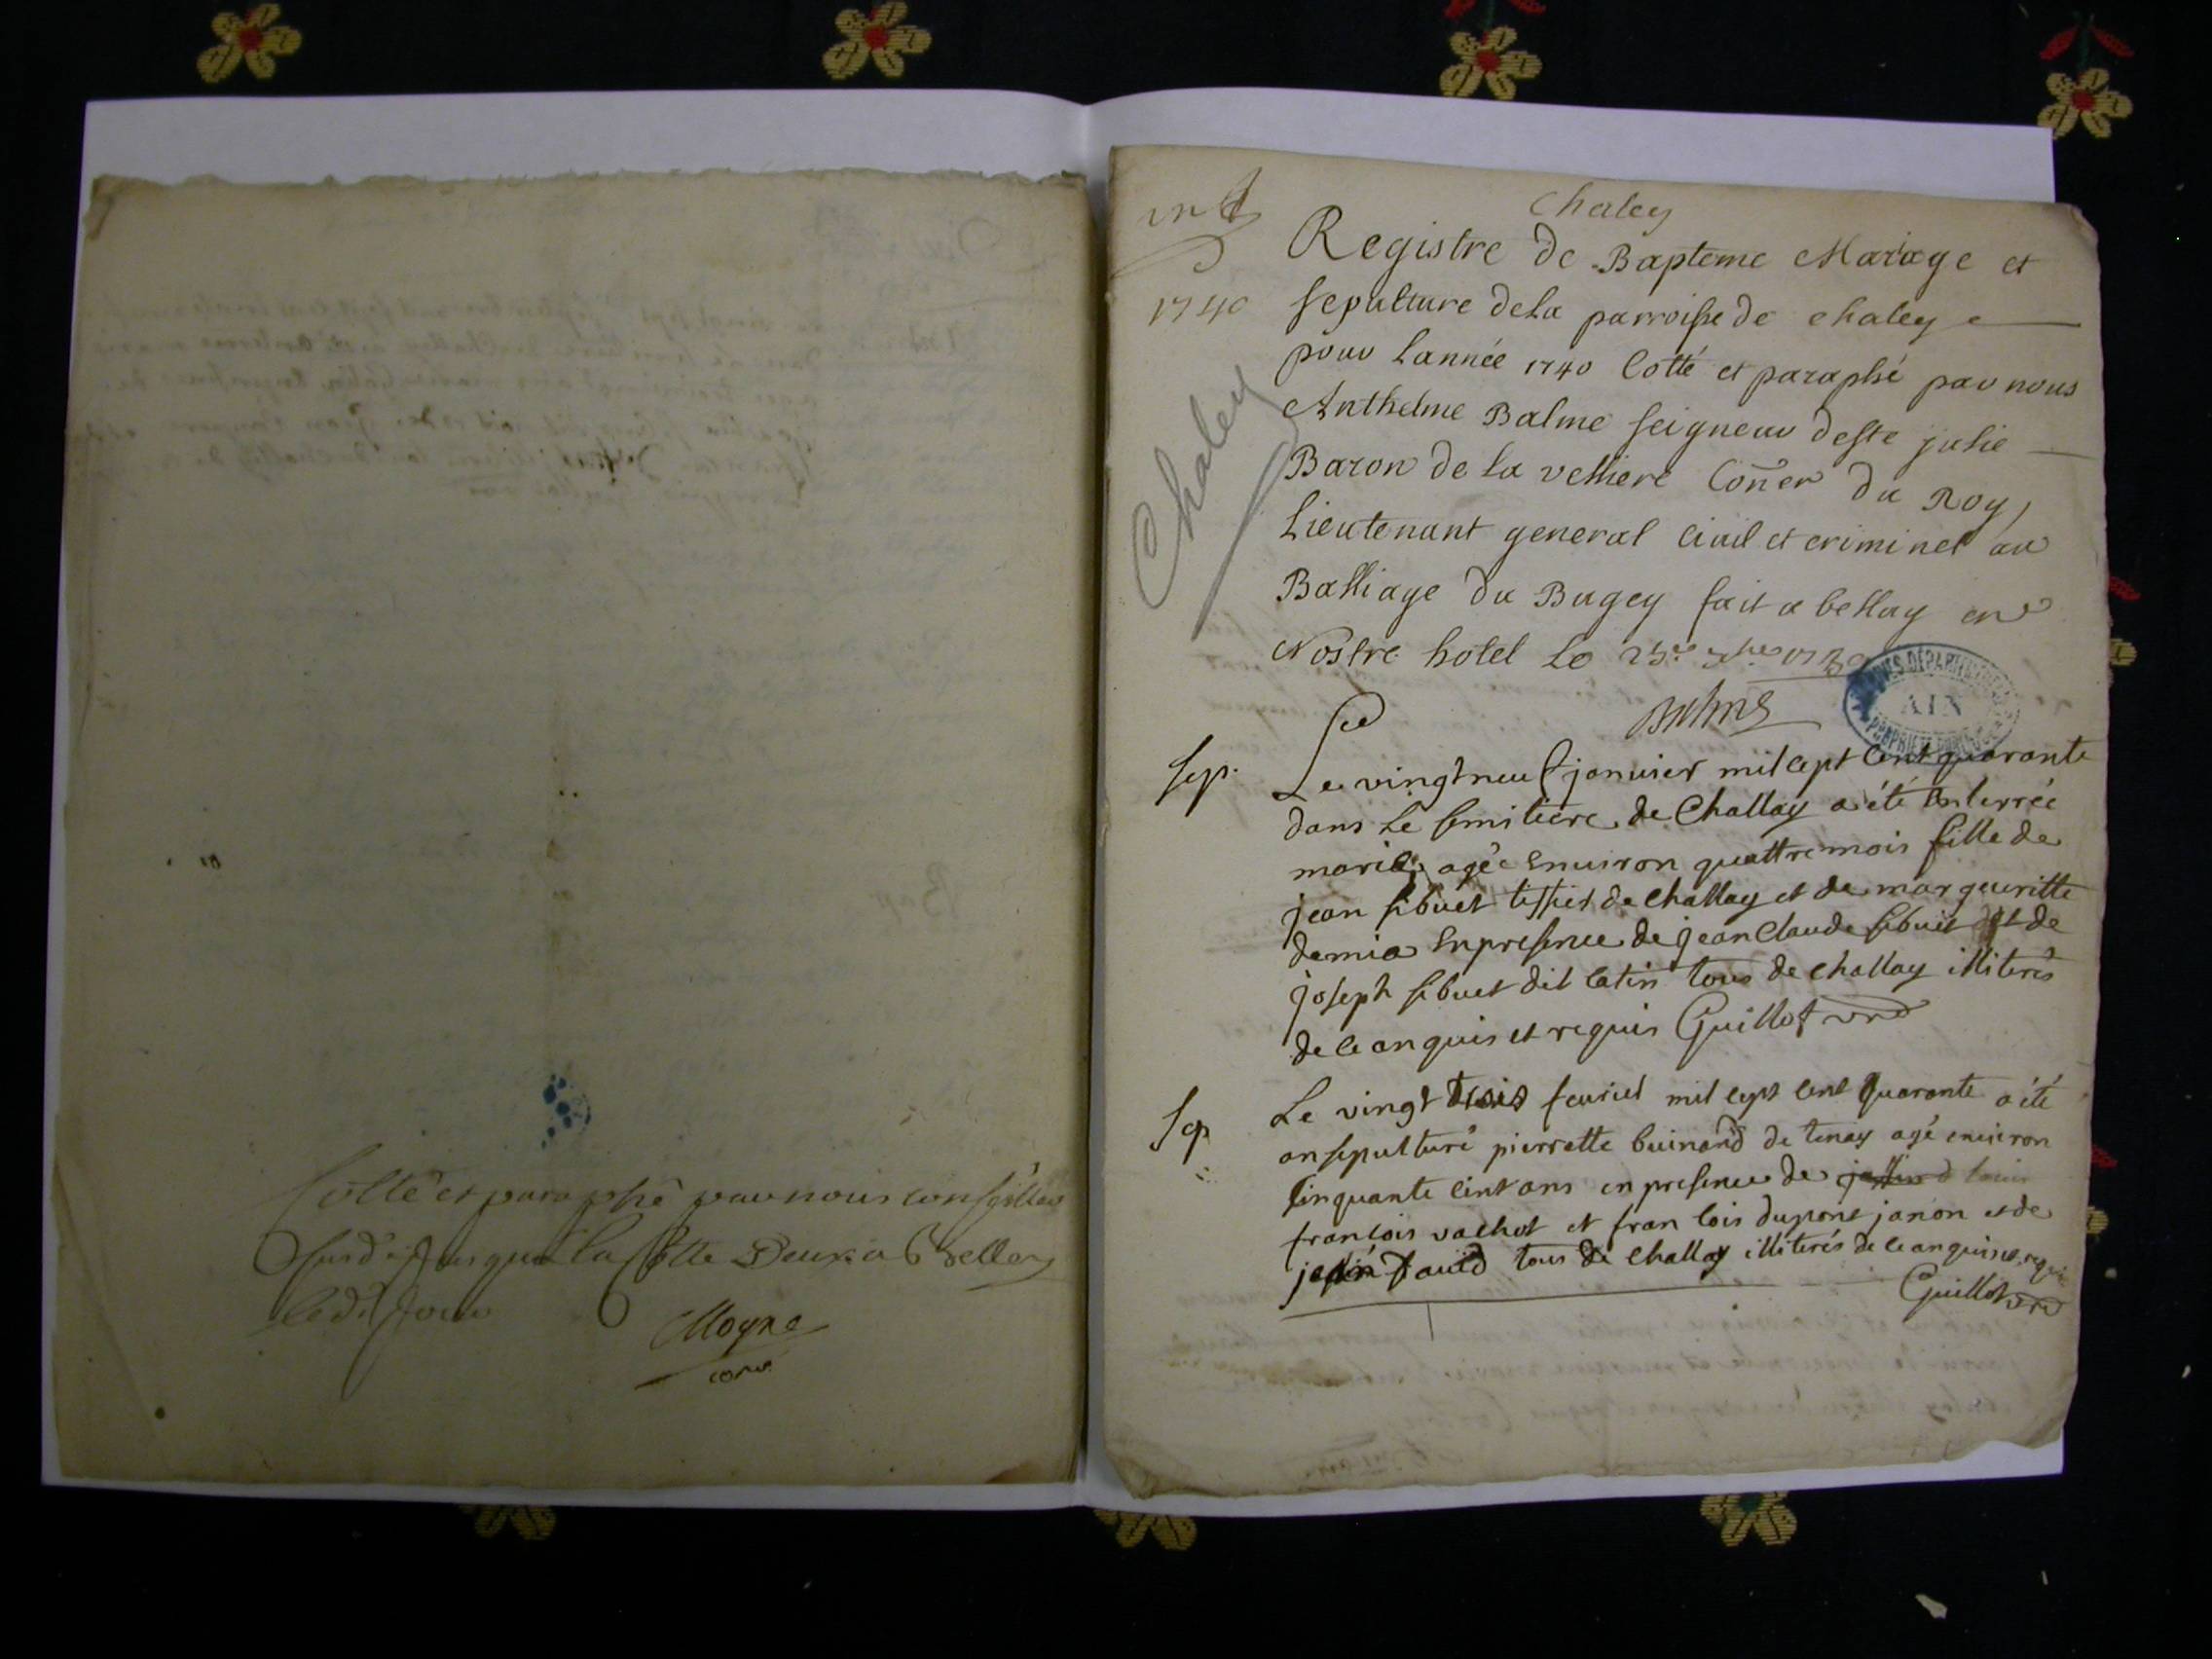 Cotté et paraphé par nous conseiller
susdit jusqua la Cotte Deux a Belley
ledit jour
Moyne
Chaley
1740
Registre de Bapteme Mariage et
sepulture dela parroisse de chaley
pour Lannée 1740 Cotté et paraphé par nous
Anthelme Balme seigneur deste julie
Baron de la velliere Coner du Roy
Lieutenant general Civil et criminel au
Balliage du Bugey fait a bellay en
Nostre hotel Le
Chaley
Balme
ARCHIVES DÉPARTEMENTALES
AIN
PROPRIÉTÉ PUBLIQUE
Sep.
Le vingt neuf janvier mil cept cent quarante
dans Le semitiere de Challay a été enterrée
marie agée environ quattre mois fille de
jean sibuet tissier de Challay et de margueritte
demia en presence de jean Claude sibuet et de
joseph sibuet dit catin tous de challay illiterés
de ce anquis et requis Guillot
Sep
Le vingt trois fevrier mil cept cent quarante a été
ansepulturé pierrette buinand de tenay agé environ
cinquante cint ans en presence de
francois vachot et francois dupont janon et de
tous de challay illiterés de ce anquis et requis
Guillot